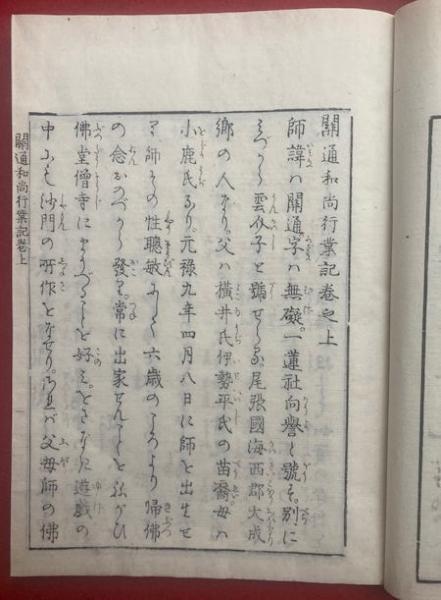 關通和尚行業記卷之上
師諱ハ關通字ハ無礙一蓮社向譽と號す別に
みづから雲介子と號せらる尾張國海西郡大成
鄉の人なり父ハ橫井氏伊勢平氏の苗裔母ハ
小鹿氏なり元祿九年四月八日に師を出生せ
り師その性聰敏にして六歳のころより歸佛
の念おのづから發り常に出家せんことを
佛堂僧寺に ことを好ミをさなき遊戲の
中にも沙門の所作をなせり 父母師の佛
關通和尚行業記卷上